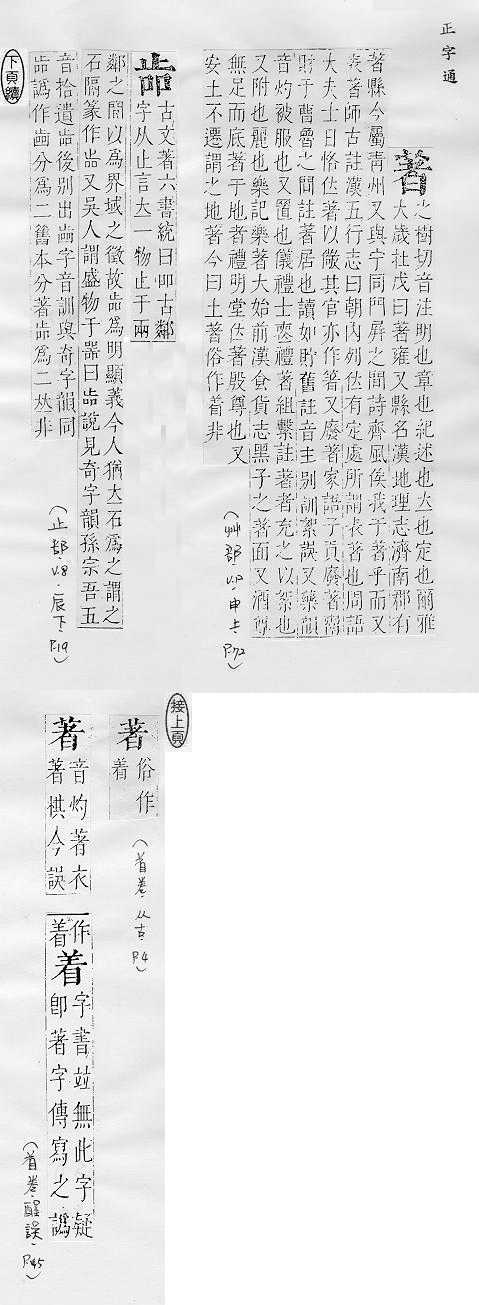 正字通
著 之樹切音注明也章也紀述也大也定也爾雅
大歲在戊曰著雍又縣名漢地理志濟南郡有
著縣今屬青州又與宁同門屏之間詩齊風俟我于著乎而又
表著師古註漢五行志曰朝內列位有定處所謂表著也周語
大夫士日恪位著以儆其官亦作箸又廢著家語子貢廢著鬻
財于曹魯之間註著居也讀如貯舊註音主別訓絮誤又藥韻
音灼被服也又置也儀禮士喪禮著組繫註著者充之以絮也
又附也麗也樂記樂著大始前漢食貨志黑子之著面又酒尊
無足而底著于地者禮明堂位著殷尊也又
安土不遷謂之地著今曰土著俗作着非
(艸部.申上.P.72)
古文著六書統曰卽古鄰
字从止言大一物止于兩
鄰之間以爲界域之徵故爲明顯義今人猶大石爲之謂之
石隔篆作又吳人謂盛物于器曰說見奇字韻孫宗吾五
音拾遺後別出字音訓與奇字韻同
譌作分爲二舊本分著爲二𠀤非
(止部.V.8.辰下.P.19)
下頁續
接上頁
著 俗作
着
(首卷.从古.P.4)
著 音灼著衣
著棋今誤
作
着
着 字書竝無此字疑
卽著字傳寫之譌
(首卷.醒誤.P.45)